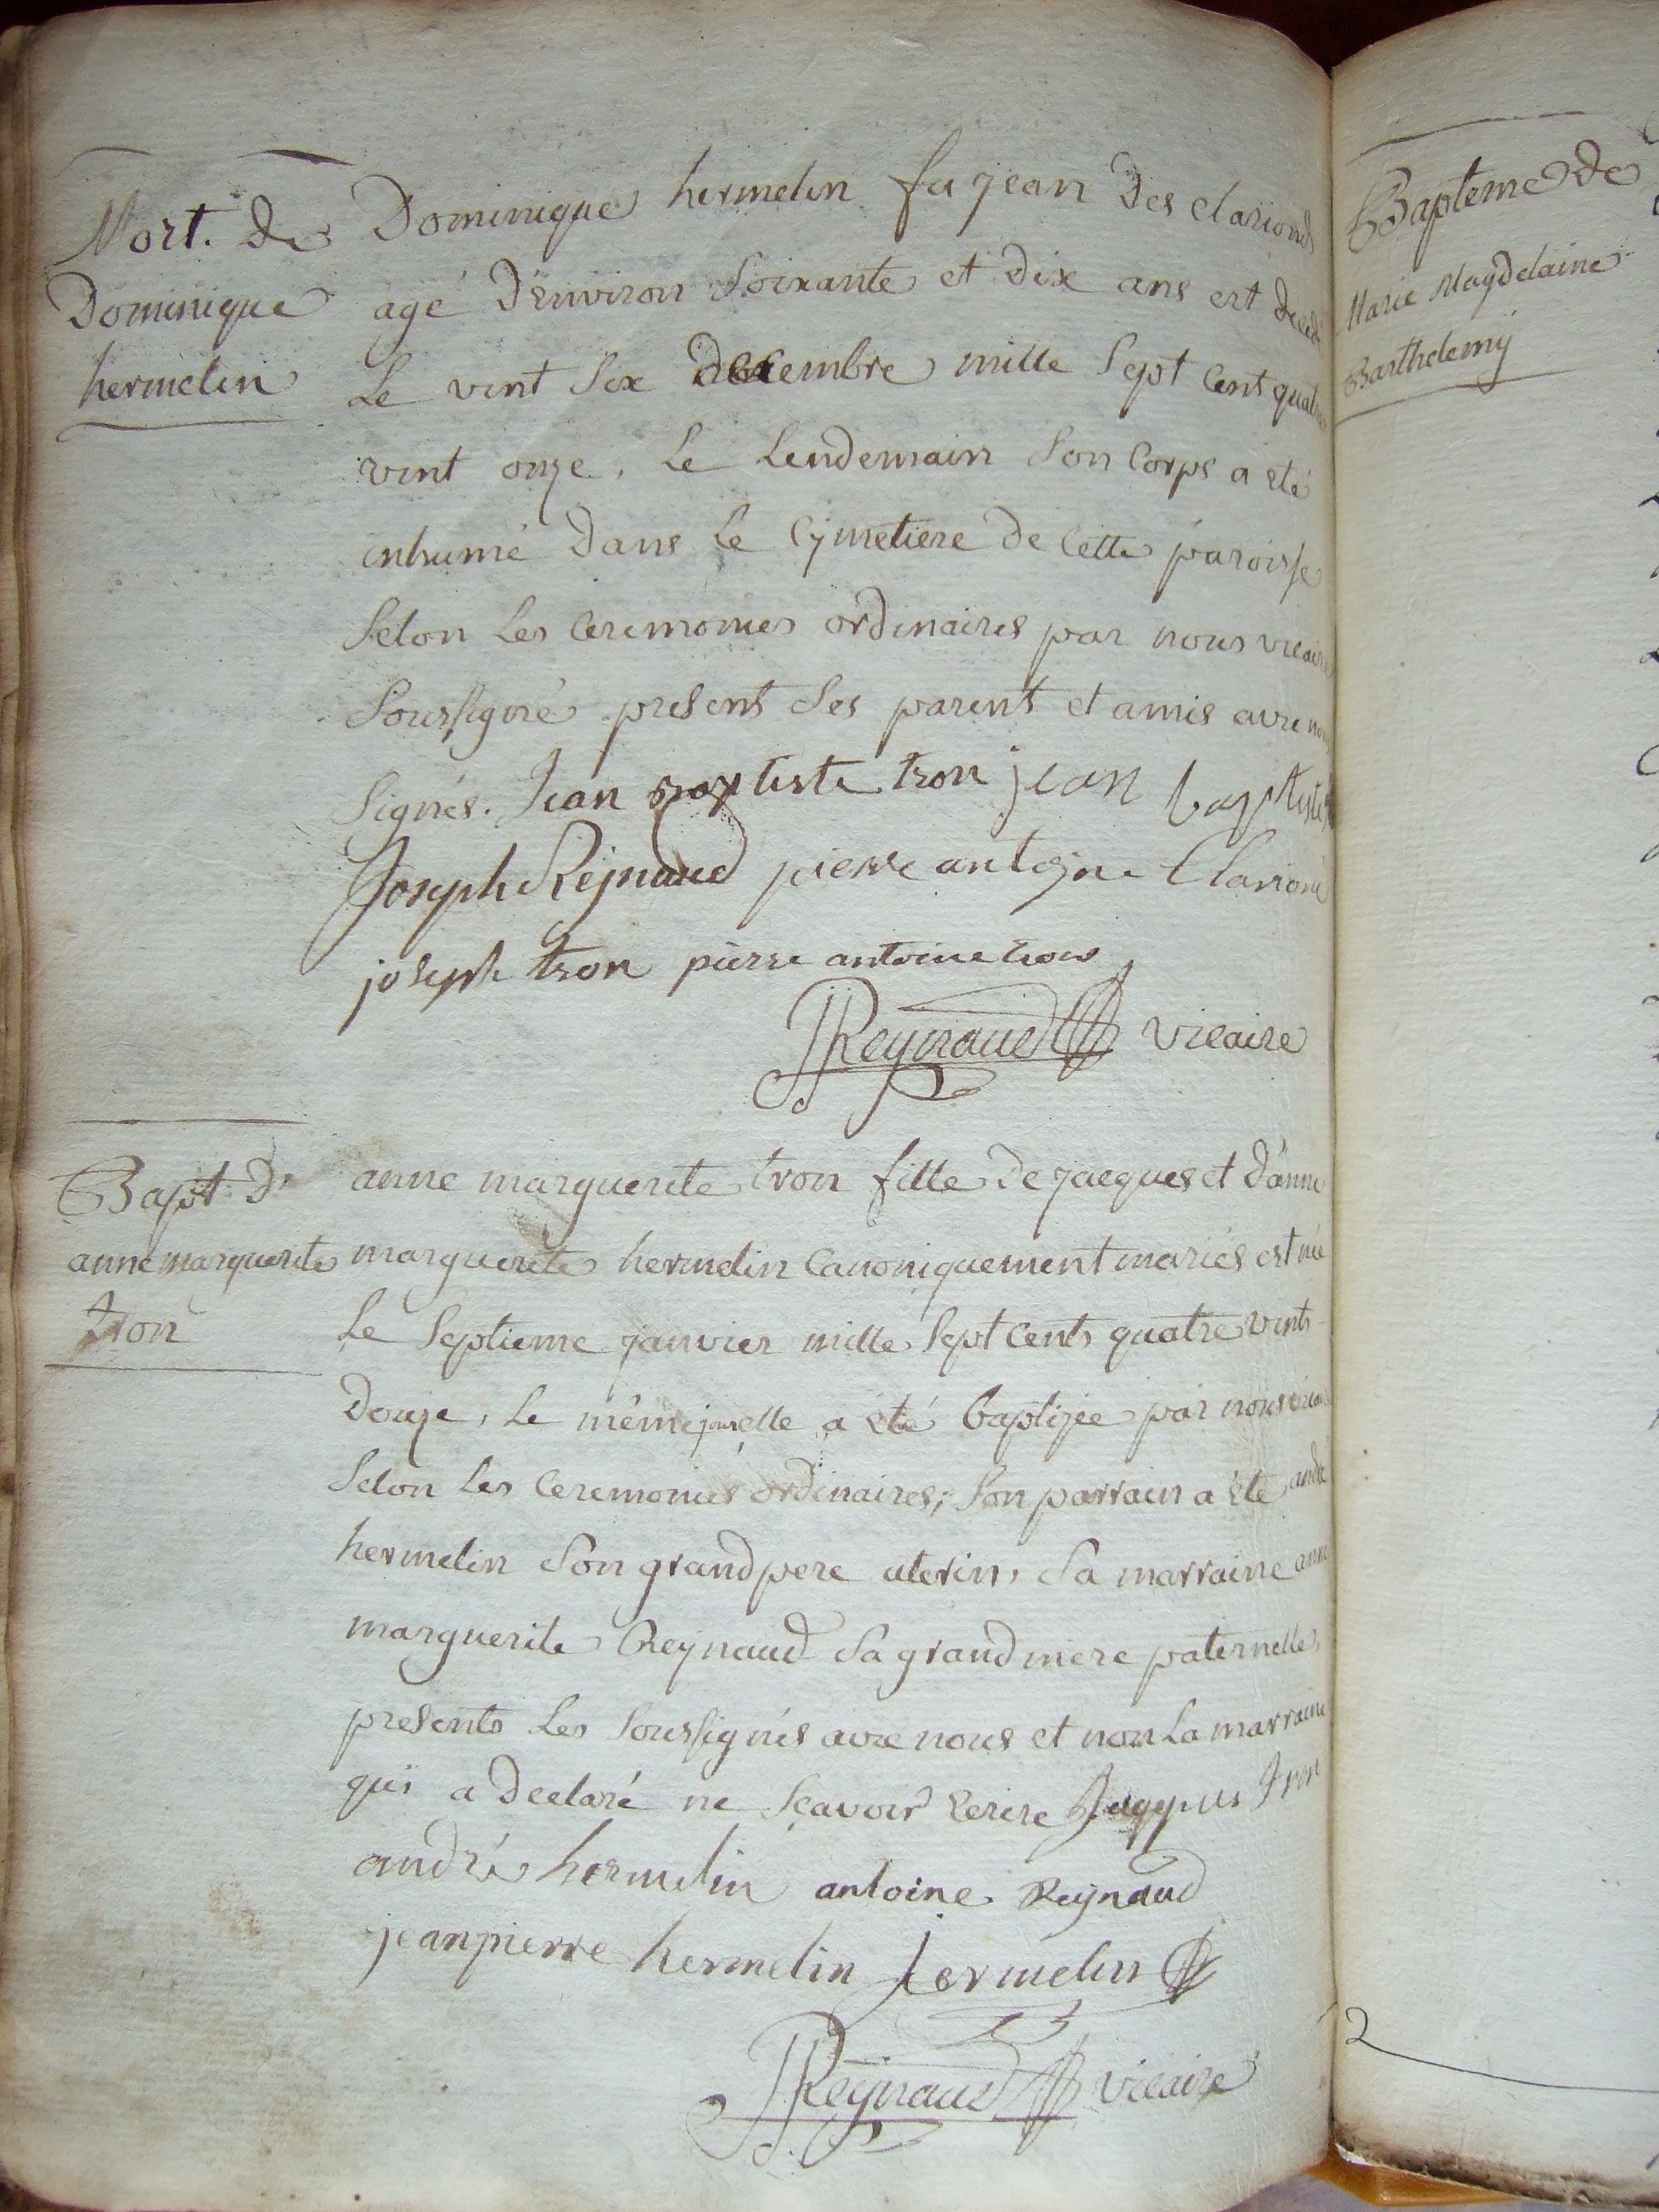 Mort. de
Dominique
hermelin
Dominique hermelin fu jean Des clarionds
agé D'environ Soixante et Dix ans est
Le vint Six decembre mille Sept Cent quatre
vint onze, Le Lendemain Son Corps a eté
inhumé Dans Le Cymetiere De Cette paroisse
Selon Les Ceremonies ordinaires par nous vicaire
Soussigné present Ses parent et amis avec nous
Signés. Jean baptiste tron jean baptiste
Joseph Reynaud pierre antoine Clariond
joseph tron pierre antoine tron
JJReynaud vicaire
Bapt. D'
anne marguerite
tron
anne marguerite tron fille De jacques et D'anne
marguerite hermelin Canoniquement mariés est née
Le Septieme janvier mille Sept Cents quatre vints
Douze, Le même jour elle a eté baptizée par nous vicaire
Selon Les Ceremonies ordinaires; Son parrain a été andré
hermelin Son grand pere uterin, Sa marraine anne
marguerite Reynaud Sa grand mere paternelle,
presents Les Soussignés avec nous et non La marraine
qui a Declaré ne Sçavoir Ecrire Jacques Tron
andré hermelin antoine Reynaud
jean pierre hermelin hermelin
JJReynaud vicaire
Bapteme de
Marie Magdelaine
Barthelemy